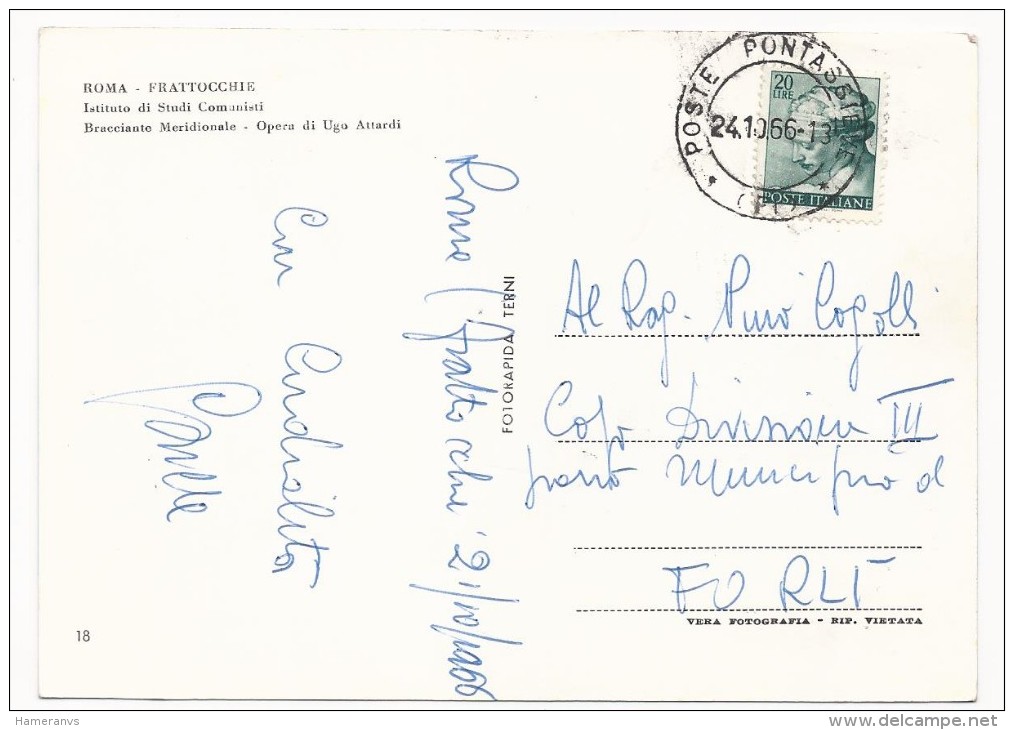 ROMA - FRATTOCCHIE
Istituto di Studi Comunisti
Bracciante Meridionale - Opera di Ugo Attardi
POSTE PONTASSIEVE
(FI)
24.10.66-13
20
LIRE
POSTE ITALIANE
Roma (Frattocchie 21/10/1966
Con
Cordialità
FOTORAPIDA TERNI
Al Rag. Pino
Capo Divisione III
presso Municipio d
FORLÌ
VERA FOTOGRAFIA - RIP. VIETATA
18
Hameranvs
delcampe.net